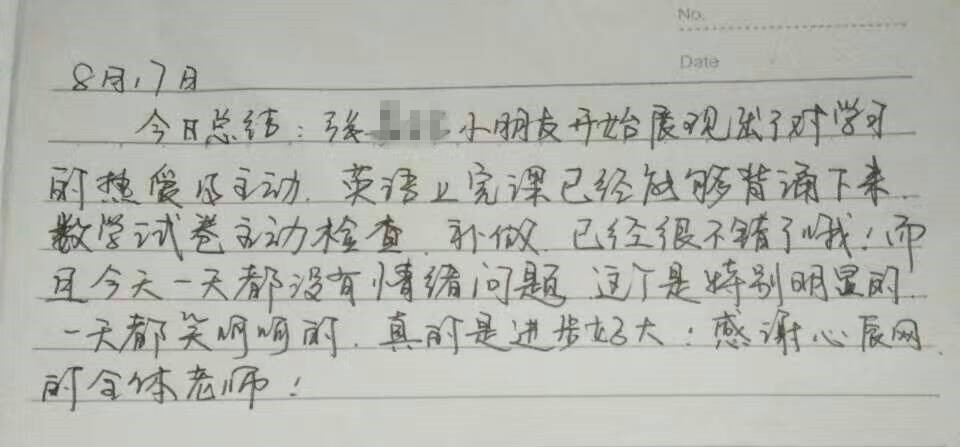 No.
Date
8月17日
今日总结：张小朋友开始展现出了对学习
的热爱及主动.英语上完课已经能够背诵下来.
数学试卷主动检查.补做.已经很不错了哦！而
且今天一天都没有情绪问题.这个是特别明显的.
一天都笑呵呵的.真的是进步好大！感谢心辰网
的全体老师！